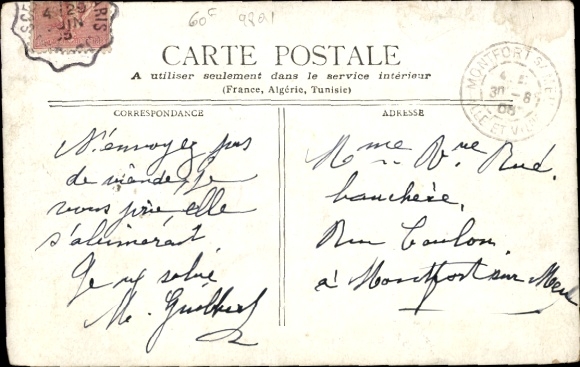 60F 9801
CARTE POSTALE
A utiliser seulement dans le service intérieur
(France, Algérie, Tunisie)
CORRESPONDANCE
N'envoyez pas
de viande je
vous prie elle
s'abimerait
Je vs salue
M.
ADRESSE
Mme Vve Rué
bouchère,
Rue
à Montfort sur Meu
MONTFORT-SUR-MEU
30 -6
08
ILLE-ET-VILNE